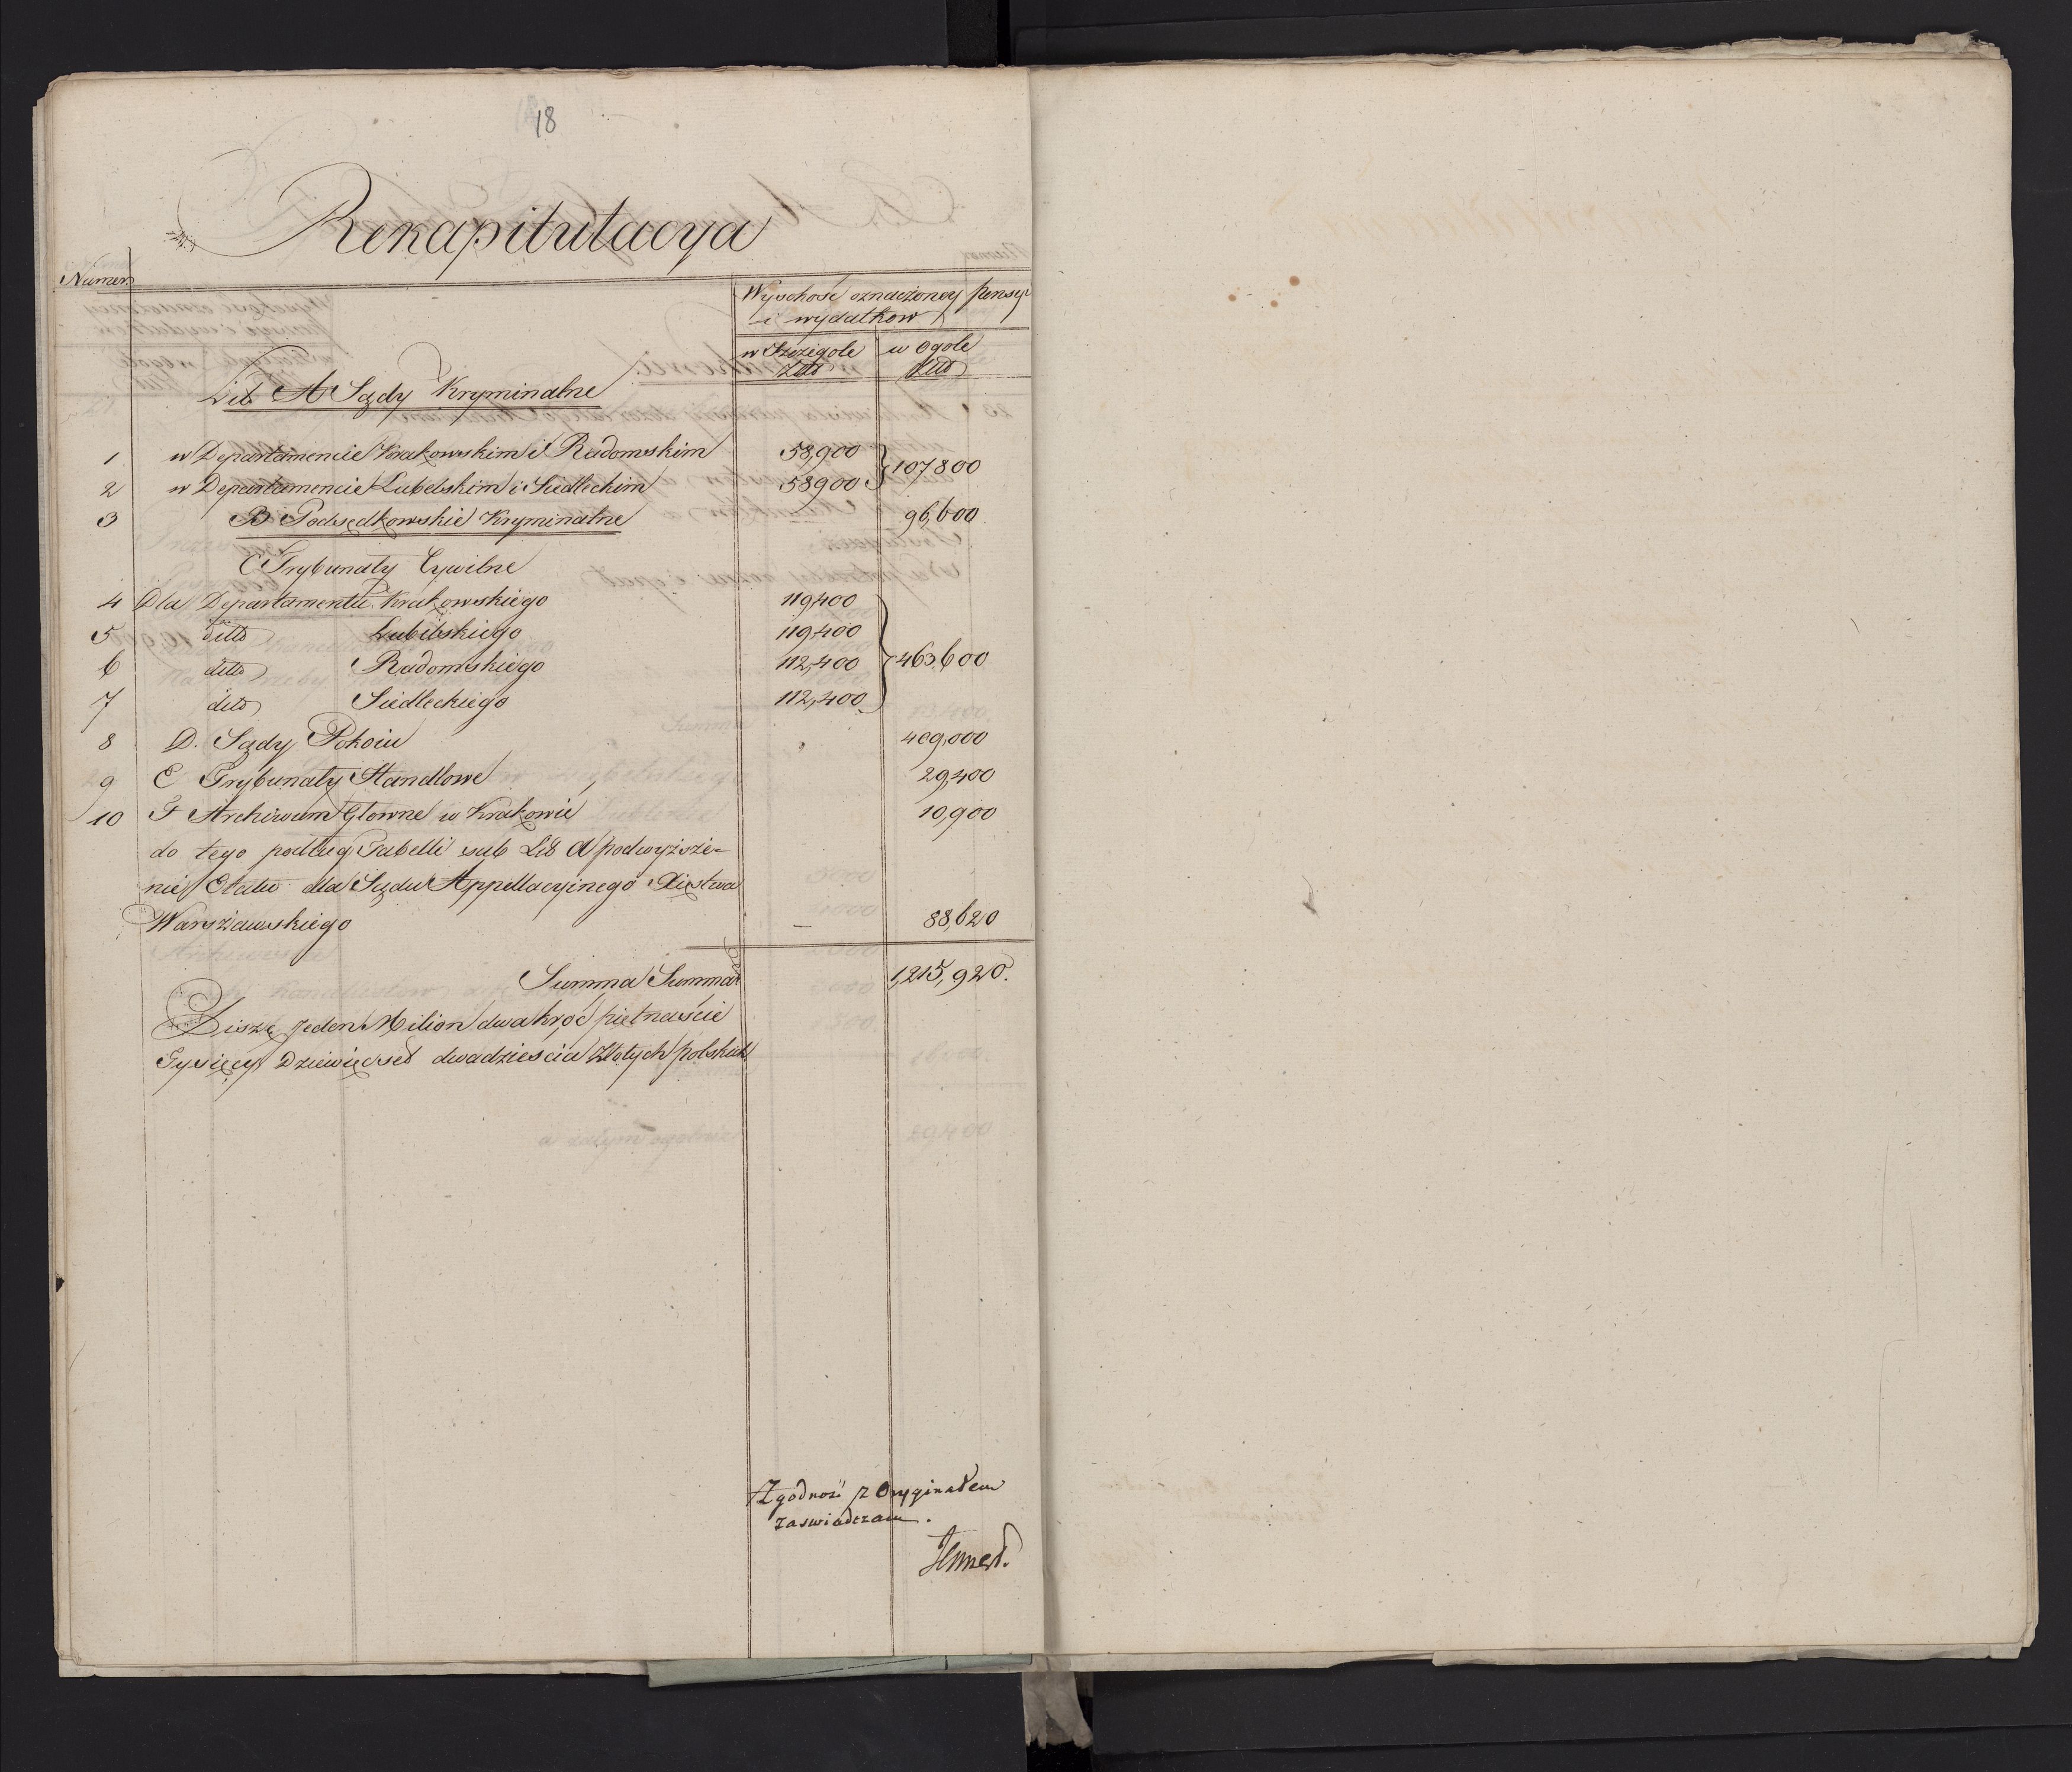 18
Rekapitulacya
Numer
Wysokość oznaczoney pensyi
i wydatkow
w Szczegole w Ogole
Zło Zło
Lit A Sądy Kryminalne
1 w Departamencie Krakowskim i Radomskim 58,900
107800
2 w Departamencie Lubelskim i Siedleckim 58900
3 B Podsędkowskie Kryminalne 96,600
C Trybunały Cywilne
4 Dla Departamentu Krakowskiego 119,400
5 ditto Lubelskiego 119,400
6 ditto Radomskiego 112,400 463.600
7 ditto Siedleckiego 112,400
8 D. Sądy Pokoiu 409,000
9 E Trybunały Handlowe 29,400
10 F Archiwum Głowne w Krakowie 10,900
do tego podług Tabelli sub Lit A podwyższe-
nie Etatu dla Sądu Appellacyinego Xięstwa
Warszawskiego - 88,620
Summa Summar 1,215,920.
Liszę Jeden Milion dwakroć pietnaście
Tysięcy Dziewięćset dwadzieścia Złotych polskich
Zgodność z Oryginałem
zaswiadczam.